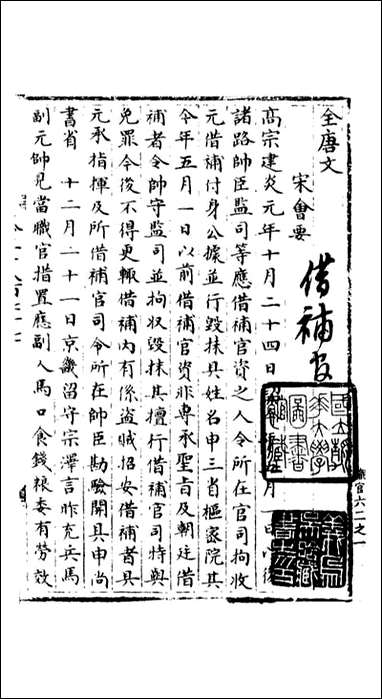 全唐文
宋會要
借補官
高宗建炎元年十月二十四日
月一日以後
諸路帥臣監司等應借補官資之人令所在官司拘收
元借補付身公據並行毀抹具姓名申三省樞密院其
今年五月一日以前借補官資非專承聖旨及朝廷借
補者令帥守監司並拘收毀抹其擅行借補官司特與
免罪今後不得更輙借補內有係盜賊招安借補者具
元承指揮及所借補官司令所在帥臣勘驗開具申尚
書省　十二月二十一日京畿留守宗澤言昨充兵馬
副元帥見當職官措置應副人馬口食錢粮委有勞效
國立清華大學圖書館藏
職官六二之一